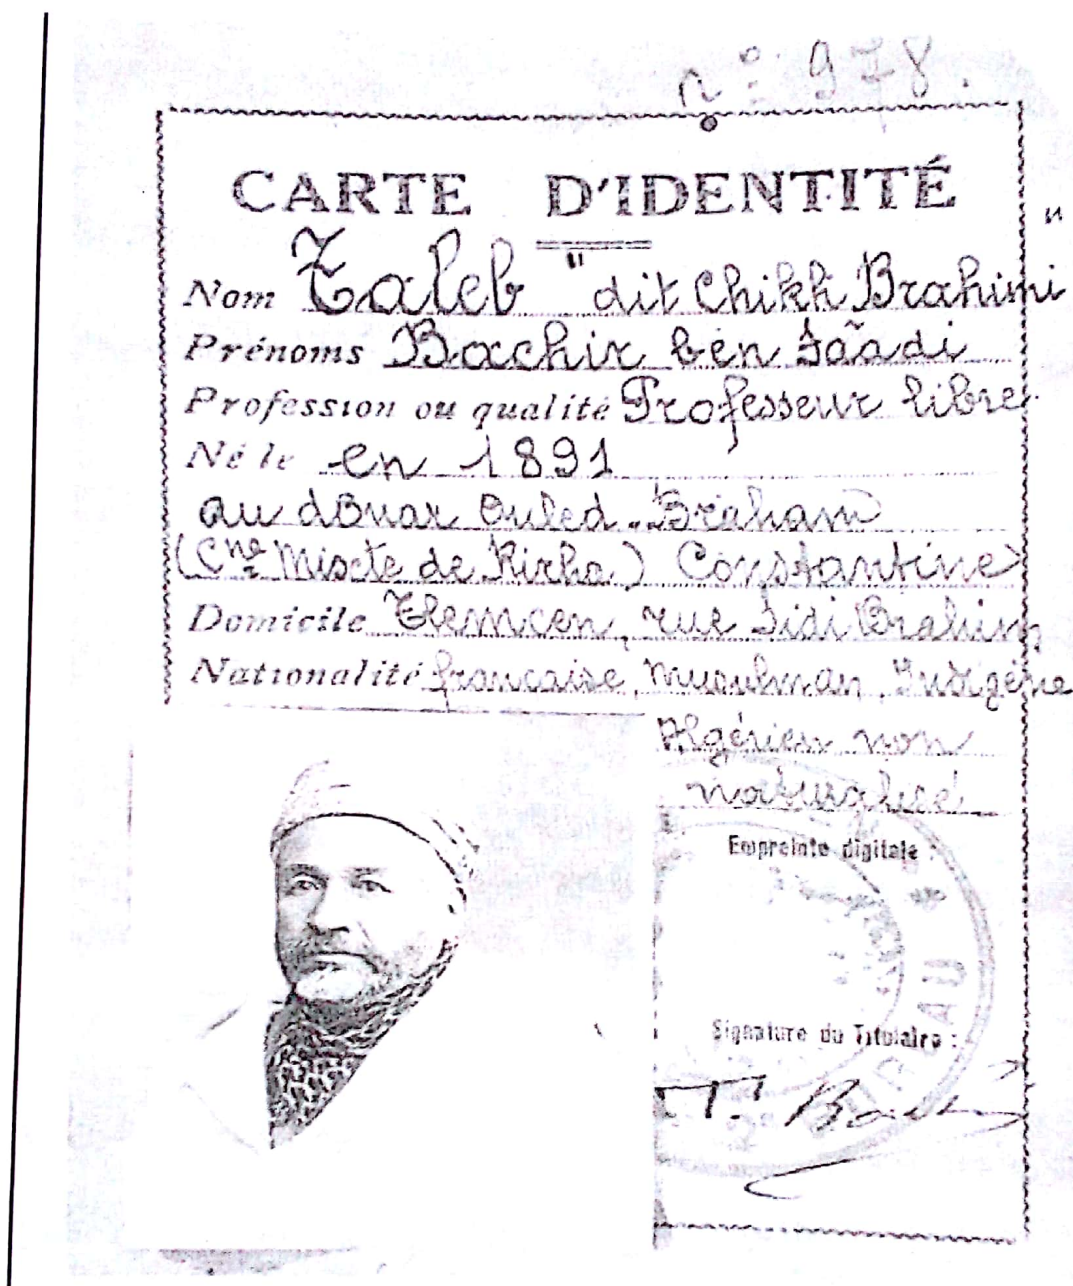 n° 978.
CARTE D'IDENTITÉ
Nom Taleb "dit Chikh Brahimi"
Prénoms Bachir ben Saâdi
Profession ou qualité Professeur libre.
Né le en 1891
au douar Ouled-Braham
(Cne Mixte de Rirha) Constantine
Domicile Tlemcen, rue Sidi Brahim,
Nationalité française, musulman, Indigène
Algérien non
naturalisé
Empreinte digitale :
BUREAU
Signature du Titulaire :
T. Bachir